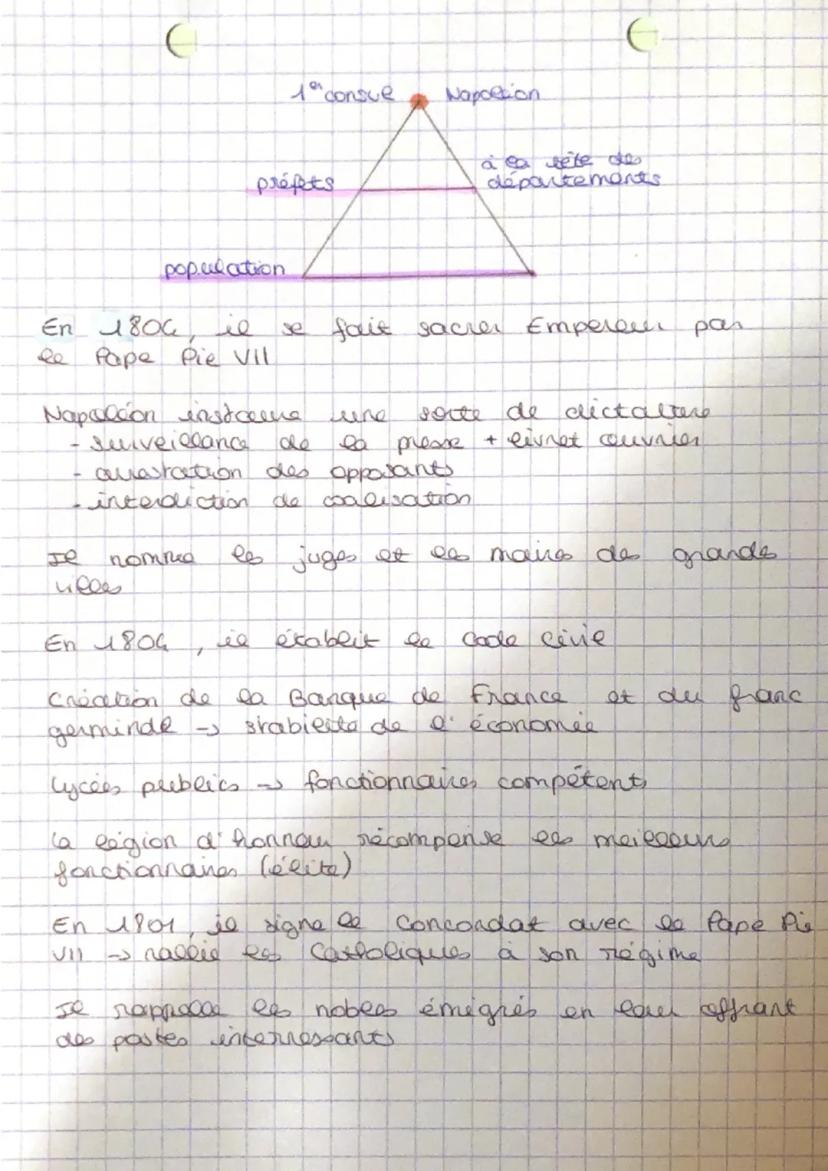 1er consul Napoléon
à la tête des
préfets départements
population
En 1804, il se fait sacrer Empereur par
le Pape Pie VII
Napoléon instaure une sorte de dictature
- surveillance de la presse + livret ouvrier
- arrestation des opposants
- interdiction de coalisation
Il nomme les juges et les maires des grandes
villes
En 1804, il établit le Code Civil
Création de la Banque de France et du franc
germinde -> stabilité de l'économie
Lycées publics -> fonctionnaires compétents
La légion d'honneur récompense les meilleurs
fonctionnaires (élite)
En 1801, il signe le Concordat avec le Pape Pie
VII -> rallie les Catholiques à son régime
Il rappelle les nobles émigrés en leur offrant
des postes interressants